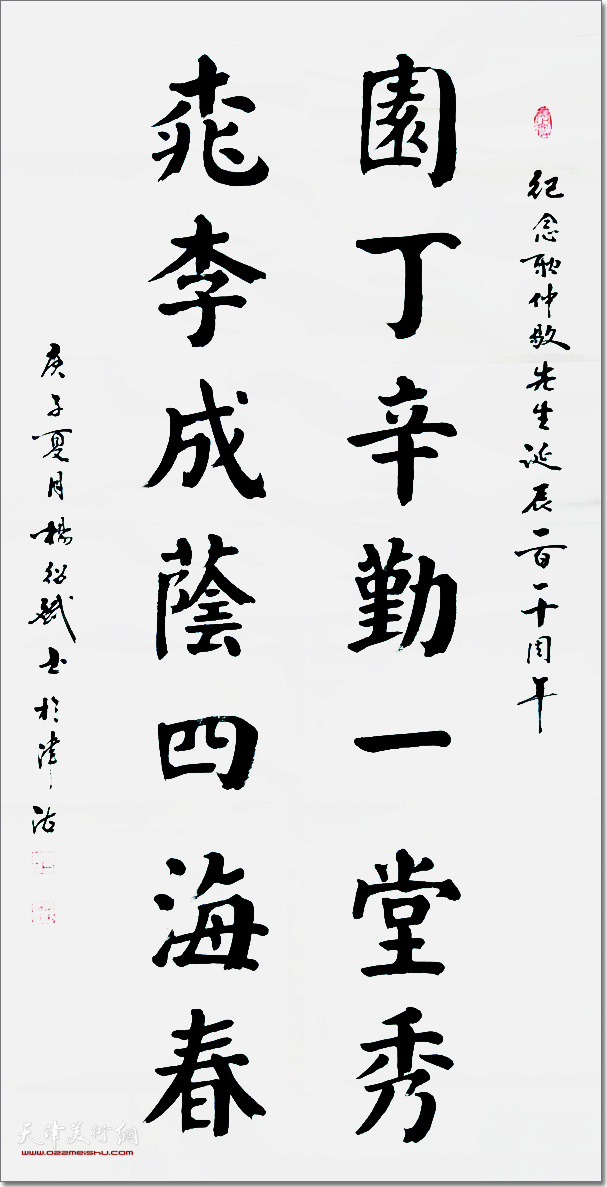 紀念耿仲敭先生誕辰一百一十周年
園丁辛勤一堂秀
桃李成蔭四海春
庚子夏月楊斌書於津沽
天津美術網
www.022meishu.com